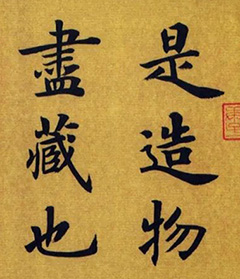 是造物
盡藏也